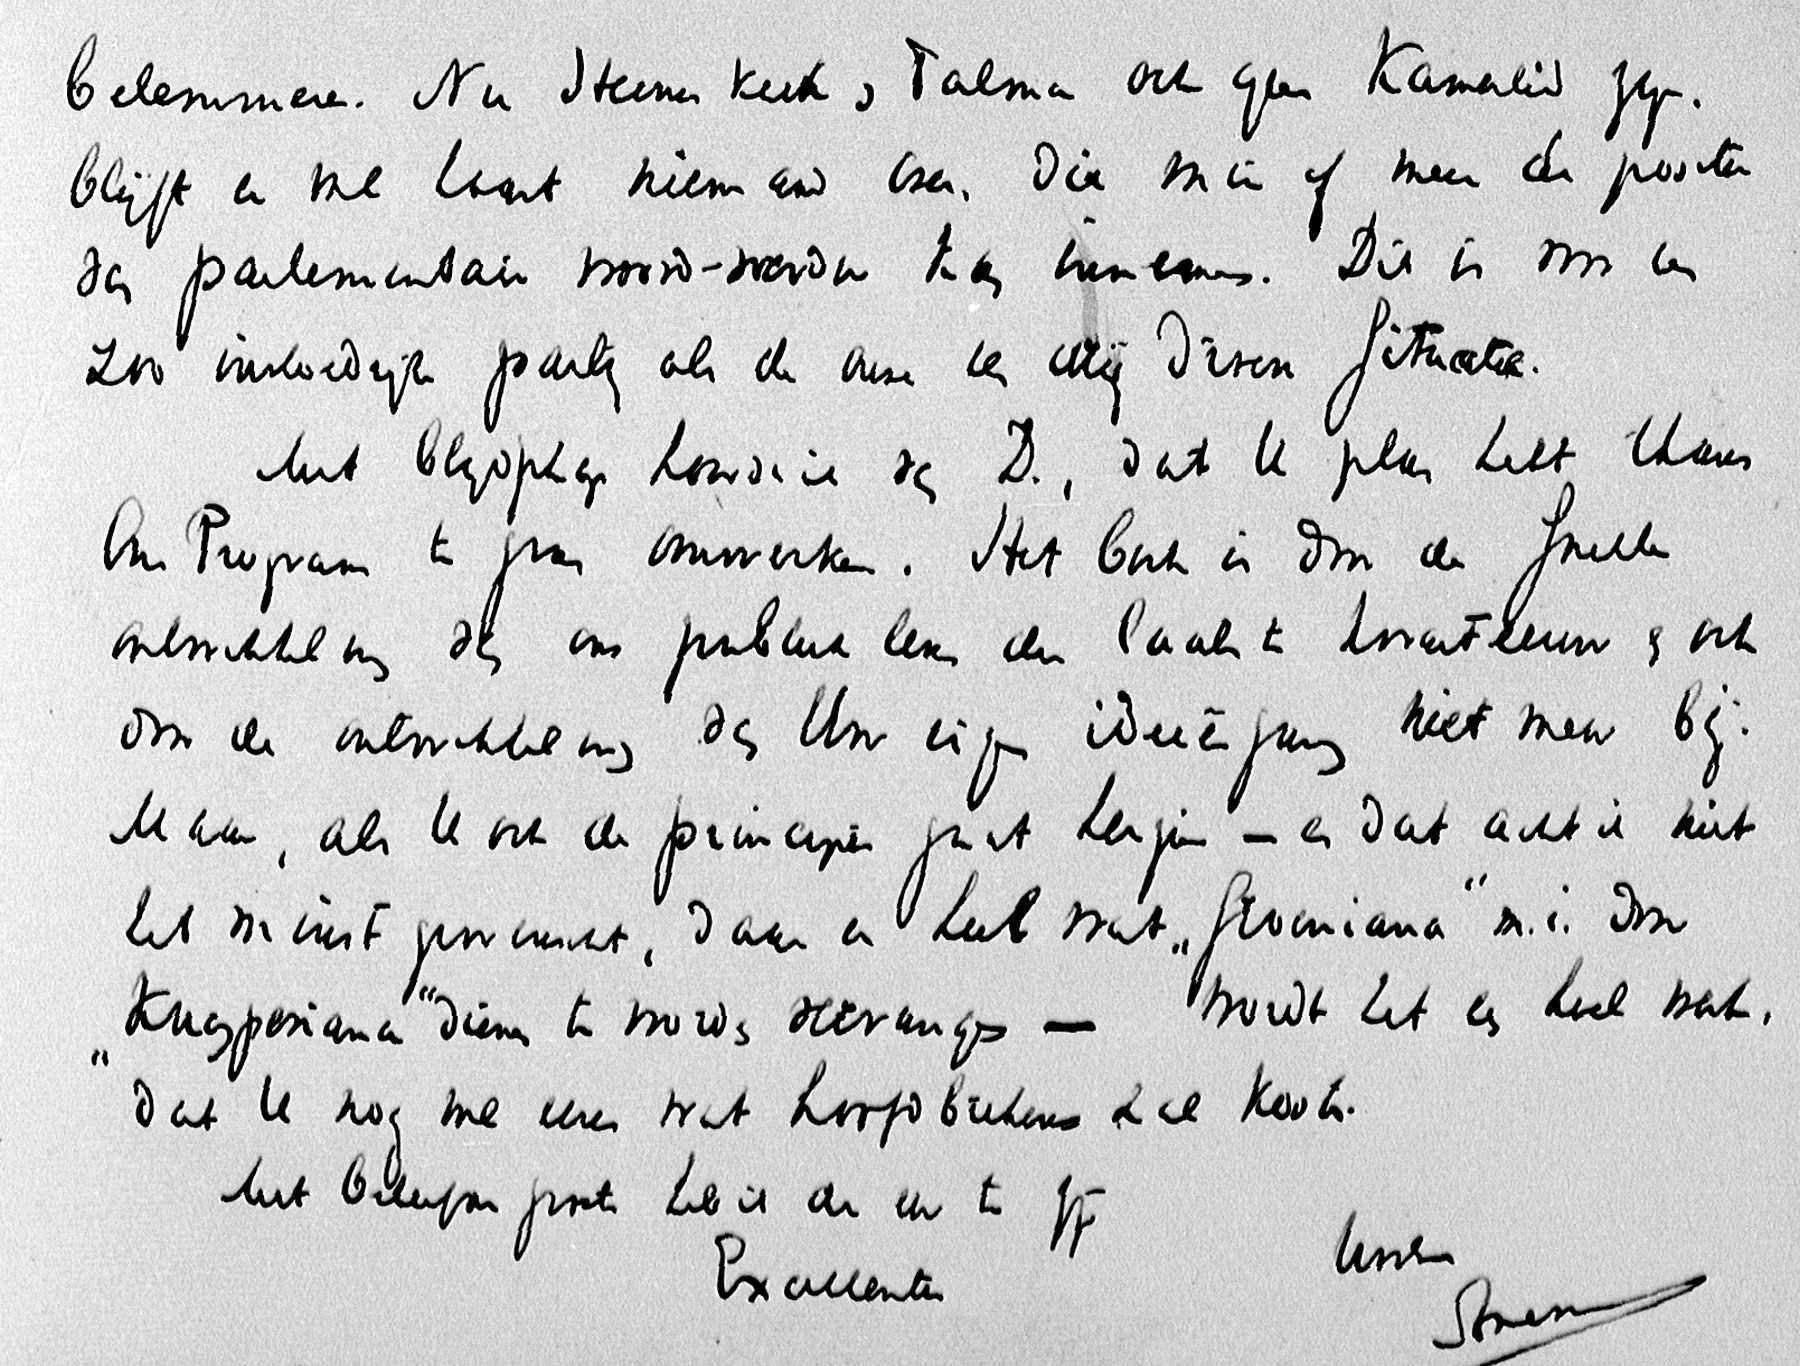 belemmeren. Nu Heemskerk & Talma ook geen Kamerlid zijn.
blijft er wel haast niemand over, die min of meer de positie
van parlementair woord-voerder kan innemen. Dit is voor een
zoo invloedrijke partij als de onze een dwaze situatie.
Met blijdschap hoorde ik van D., dat U plan hebt thans
Ons Program te gaan omwerken. Het boek is door de snelle
ontwikkeling van ons publiek leven der laatste kwarteeuw & ook
door de ontwikkeling van Uw eigen ideeëngang niet meer bij.
Maar, als U ook de principia gaat herzien – en dat acht ik niet
het minst gewenscht, daar er heel wat „Groeniana" m.i. door
„Kuyperiana" dienen te worden vervangen – wordt het een heel werk,
dat U nog wel eens wat hoofdbrekens zal kosten.
Met beleefde groete heb ik de eer te zijn
Excellentie
Uwe